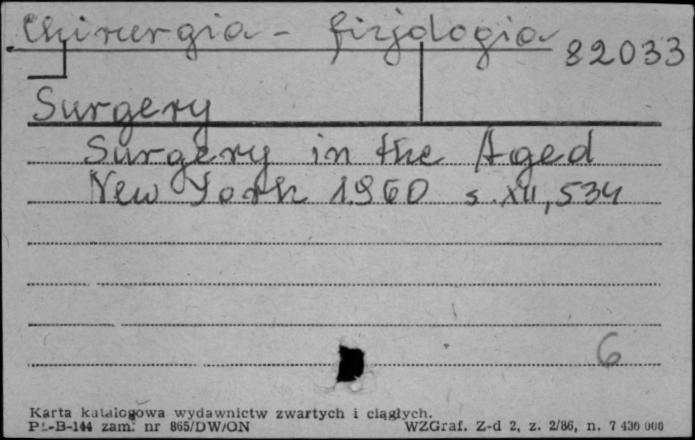 Chirurgia - fizjologia
82033
Surgery
Surgery in the Aged
New York 1960 s. XII, 534
6
Karta katalogowa wydawnictw zwartych i ciągłych.
PL-B-144 zam. nr 865/DW/ON WZGraf. Z-d 2, z. 2/86, n. 7 430 000